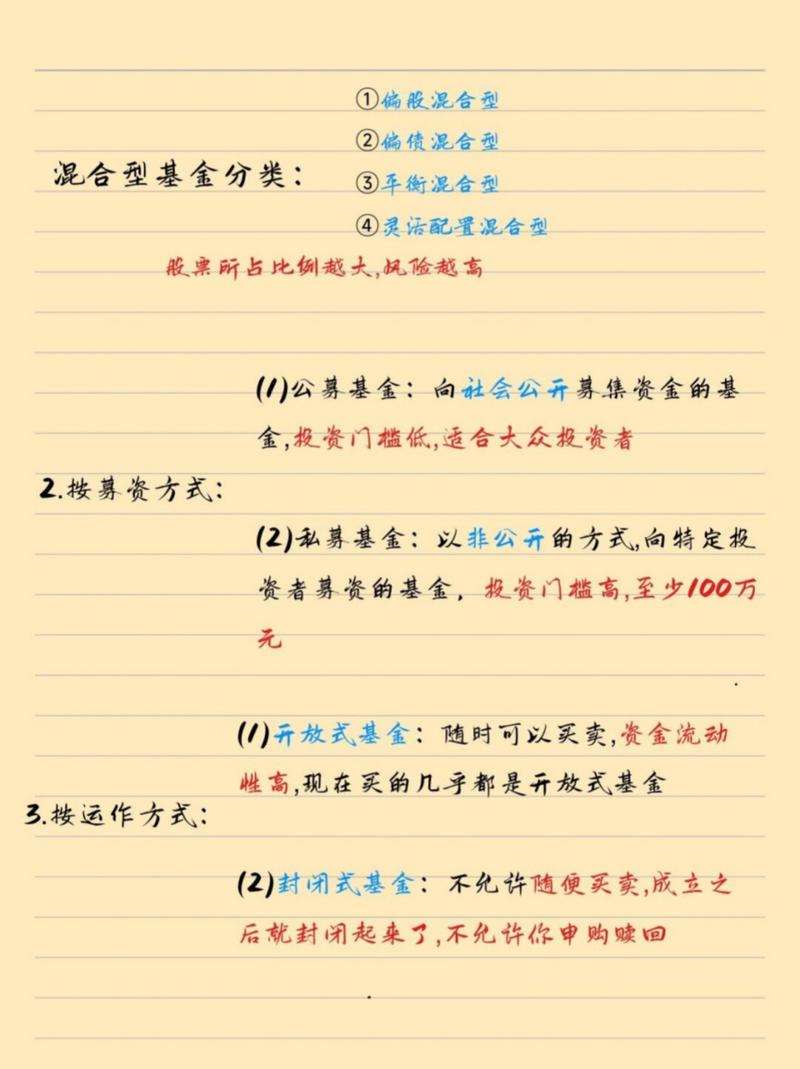 ①偏股混合型
②偏债混合型
混合型基金分类：
③平衡混合型
④灵活配置混合型
股票所占比例越大,风险越高
(1)公募基金：向社会公开募集资金的基
金,投资门槛低,适合大众投资者
2.按募资方式：
(2)私募基金：以非公开的方式,向特定投
资者募资的基金，投资门槛高,至少100万
元
(1)开放式基金：随时可以买卖,资金流动
性高,现在买的几乎都是开放式基金
3.按运作方式：
(2)封闭式基金：不允许随便买卖,成立之
后就封闭起来了,不允许你申购赎回